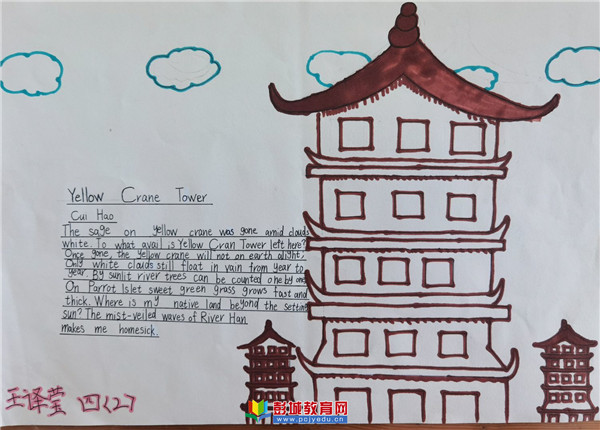 Yellow Crane Tower
Cui Hao
The sage on yellow crane was gone amid clouds
white. To what avail is Yellow Cran Tower left here?
Once gone, the yellow crane will not on earth alight;
Only white clouds still float in vain from year to
year. By sunlit river trees can be counted one by one
On Parrot Islet sweet green grass grows fast and
thick. Where is my native land beyond the setting
sun? The mist-veiled waves of River Han
makes me homesick.
王译莹 四〈2〉
彭城教育网
www.pcjyedu.cn